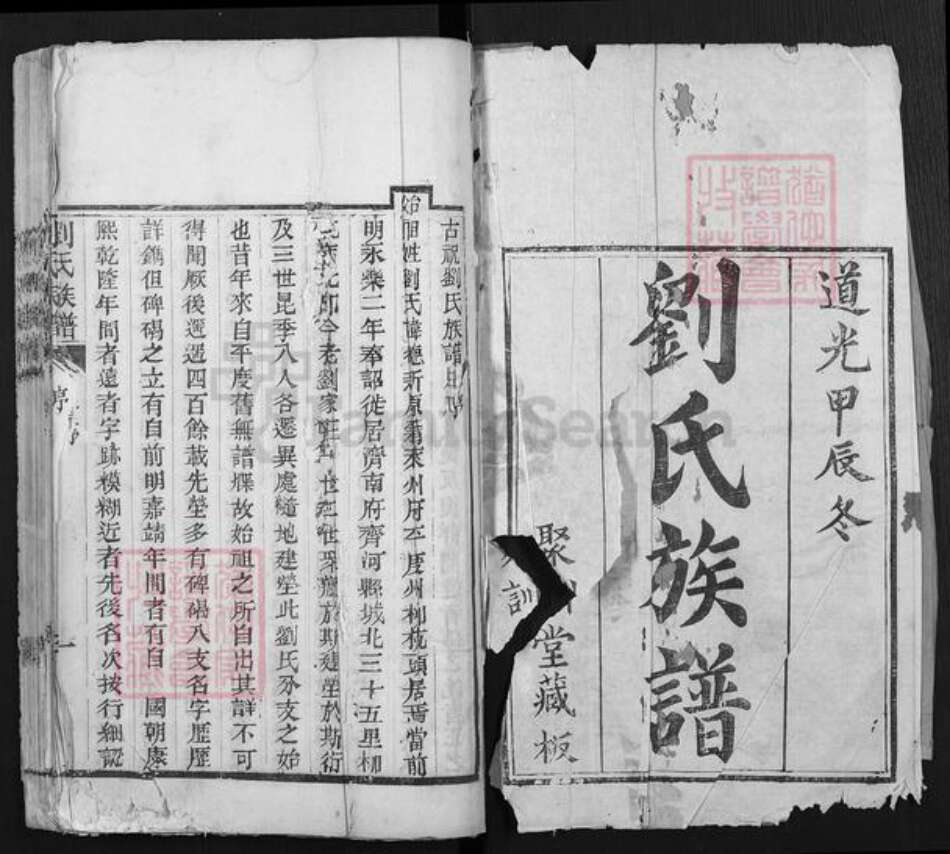 道光甲辰冬
劉氏族譜
聚 堂藏板
訓
古祝劉氏族譜 序
始祖姓劉氏諱 新原籍萊州府平度州柳杭頭居焉當前
明永樂二年奉詔徙居濟南府齊河縣城北三十五里柳
北即今老劉家 世 世 於斯建塋於斯衍
及三世昆季八人各遷異處隨地建塋此劉氏分支之始
也昔年來自平度舊無譜牒故始祖之所自出其詳不可
得聞厥後遷遞四百餘載先塋多有碑碣八支名字歷歷
詳鐫但碑碣之立有自前明嘉靖年間者有自 國朝康
熙乾隆年間者遠者字跡模糊近者先後名次按行細認
劉氏族譜 序 一
FamilySearch